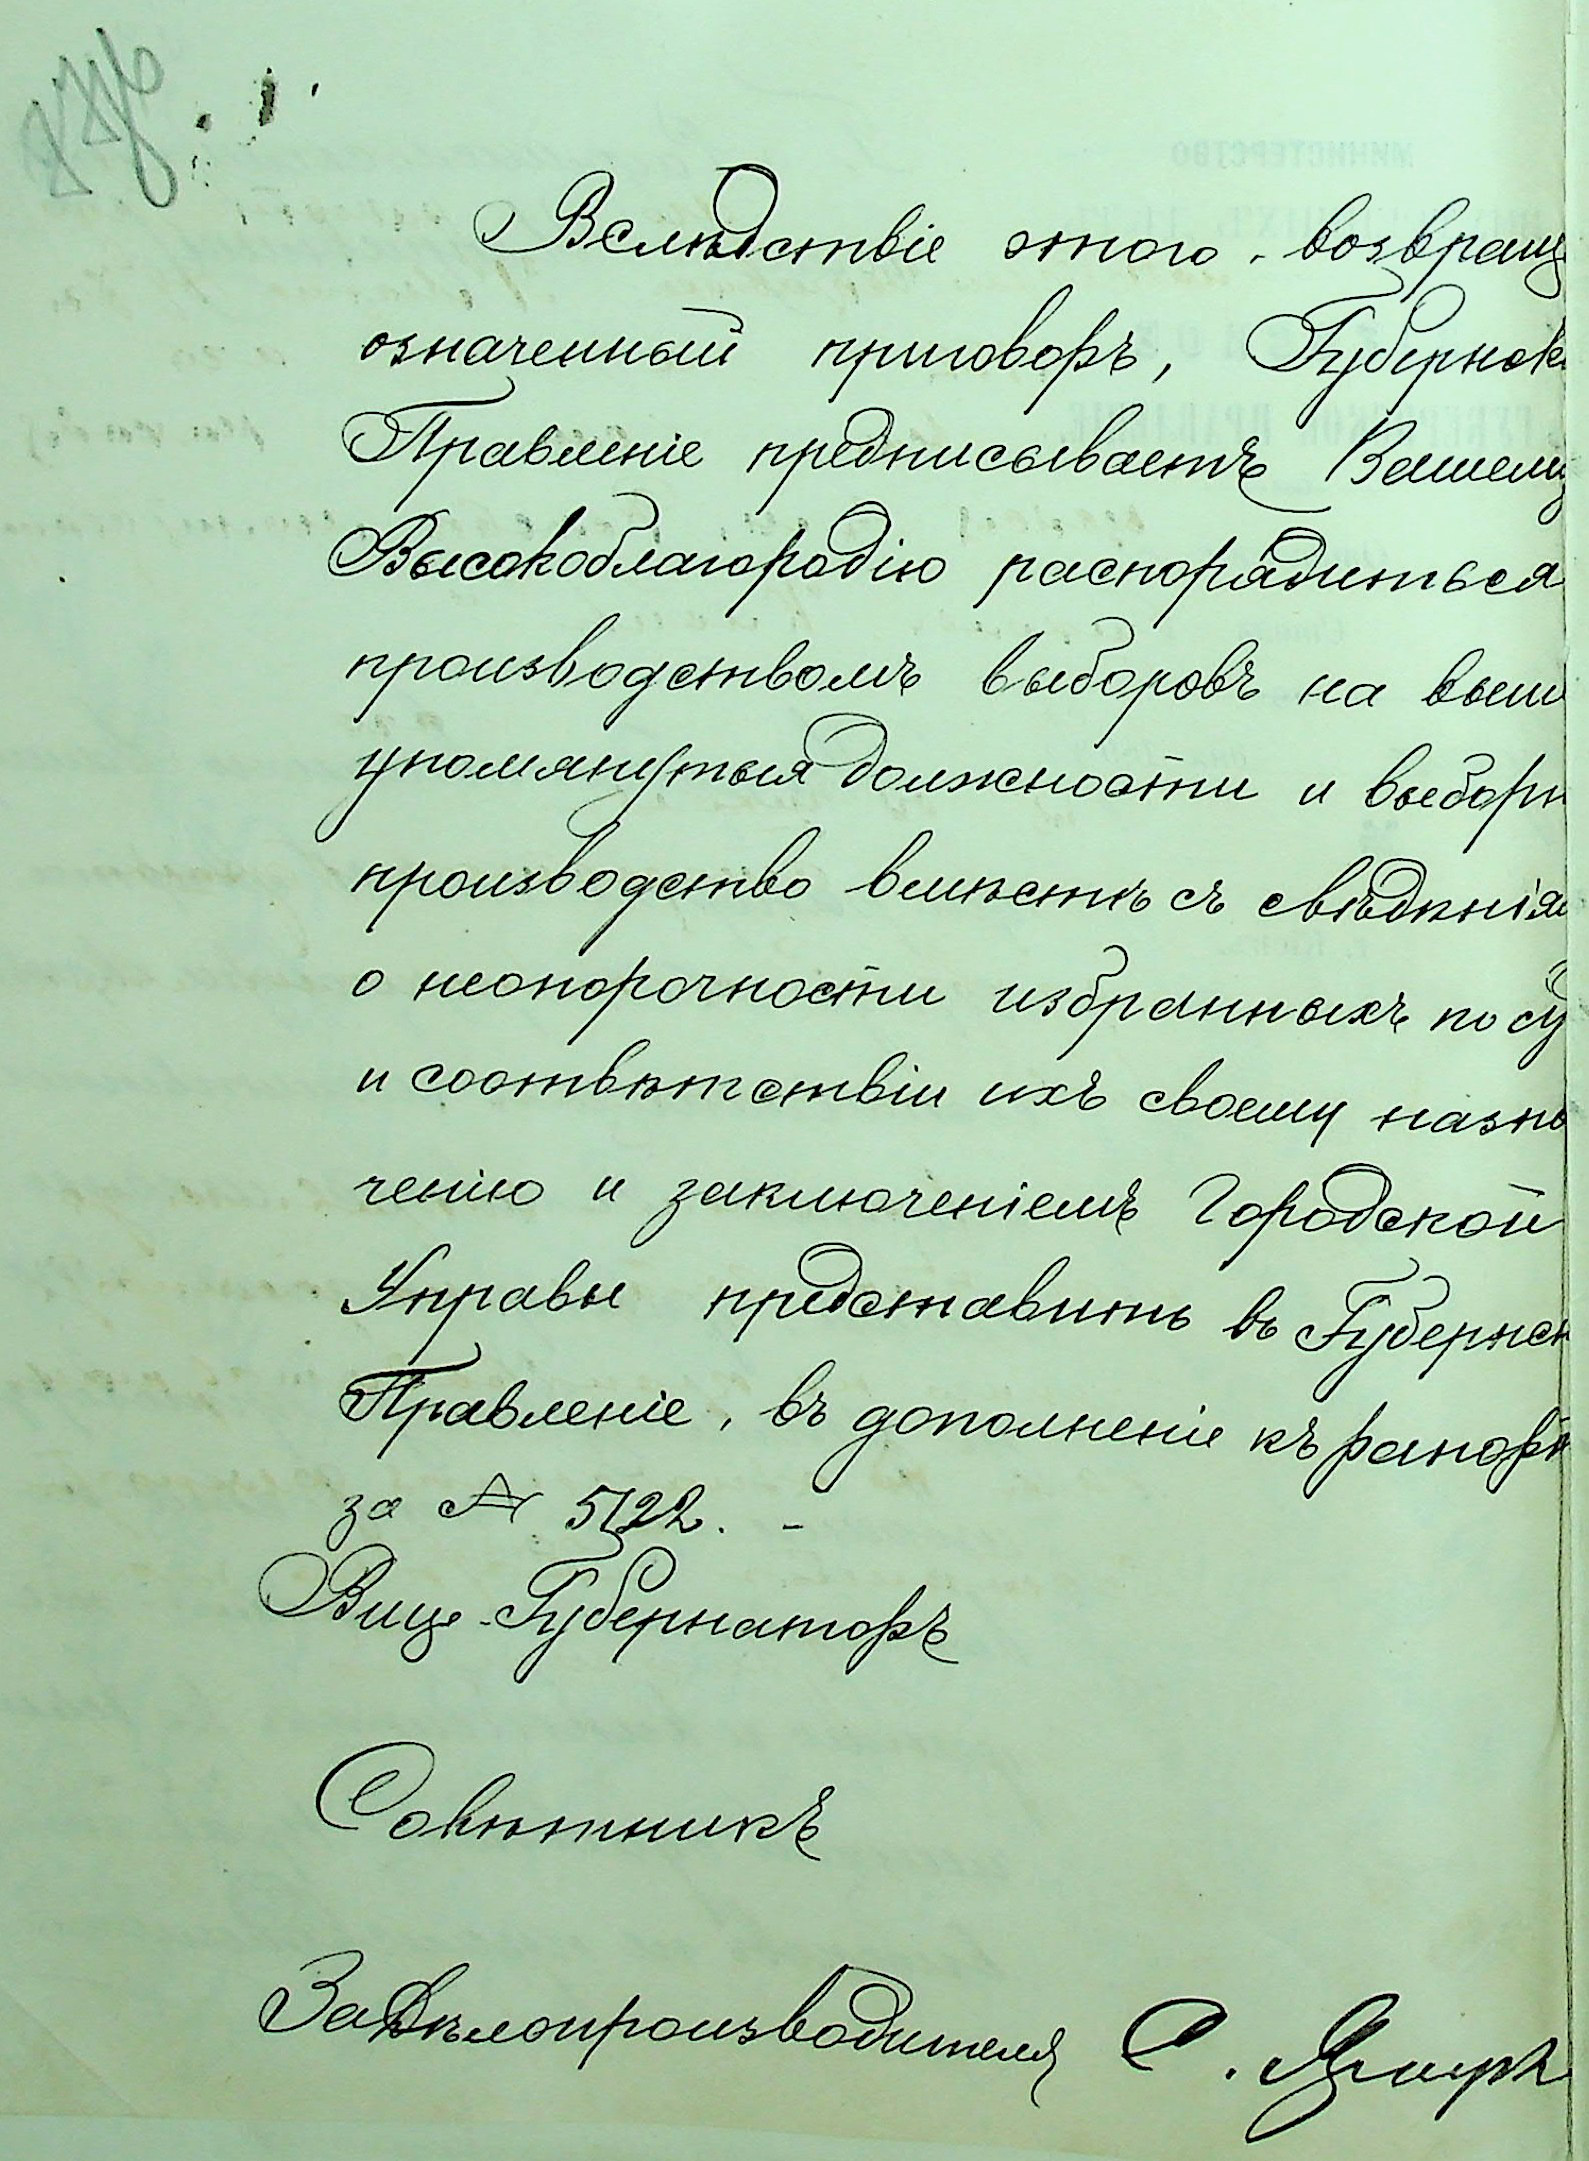 Вслѣдствіе этого, возвращ
означенный приговоръ, Губернск
Правленіе предписываетъ Вашему
Высокоблагородію распорядиться
производствомъ выборовъ на выш
упомянутыя должности и выборн
производство вмѣстѣ съ свѣдѣнія
о неопорочности избранныхъ по су
и соотвѣтствіи ихъ своему назна
ченію и заключеніемъ Городской
Управы представить въ Губернск
Правленіе, въ дополненіе къ рапорт
за № 5122. -
Вице-Губернаторъ
Совѣтникъ
За Дѣлопроизводителя С.